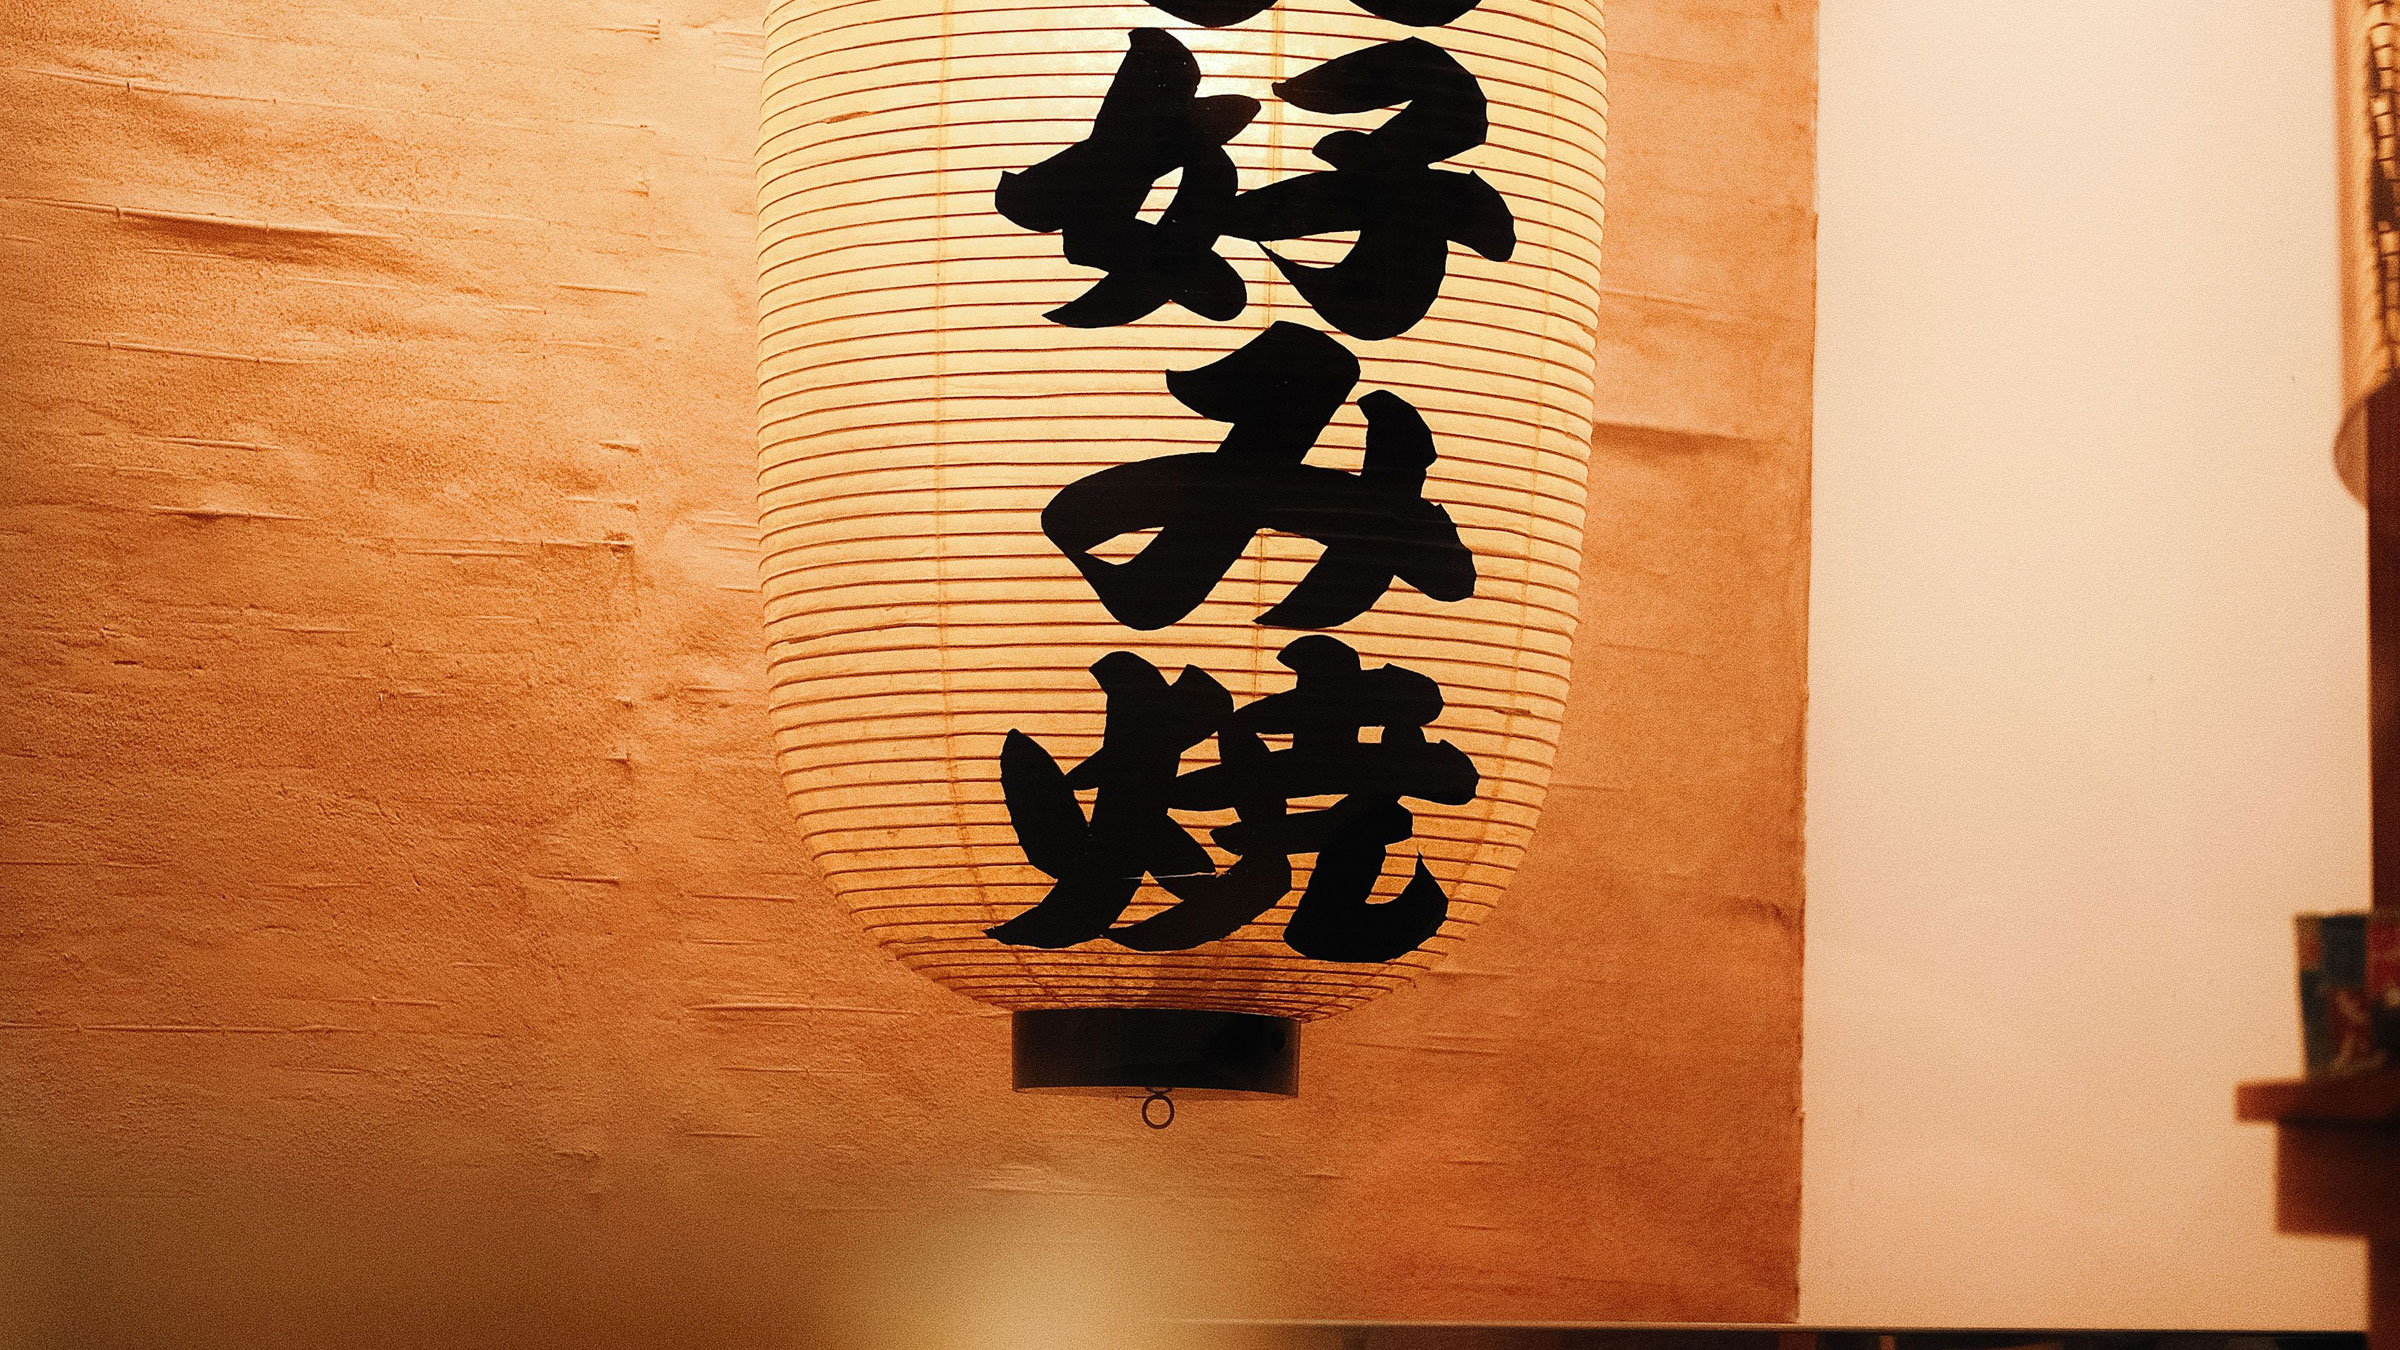 好み焼